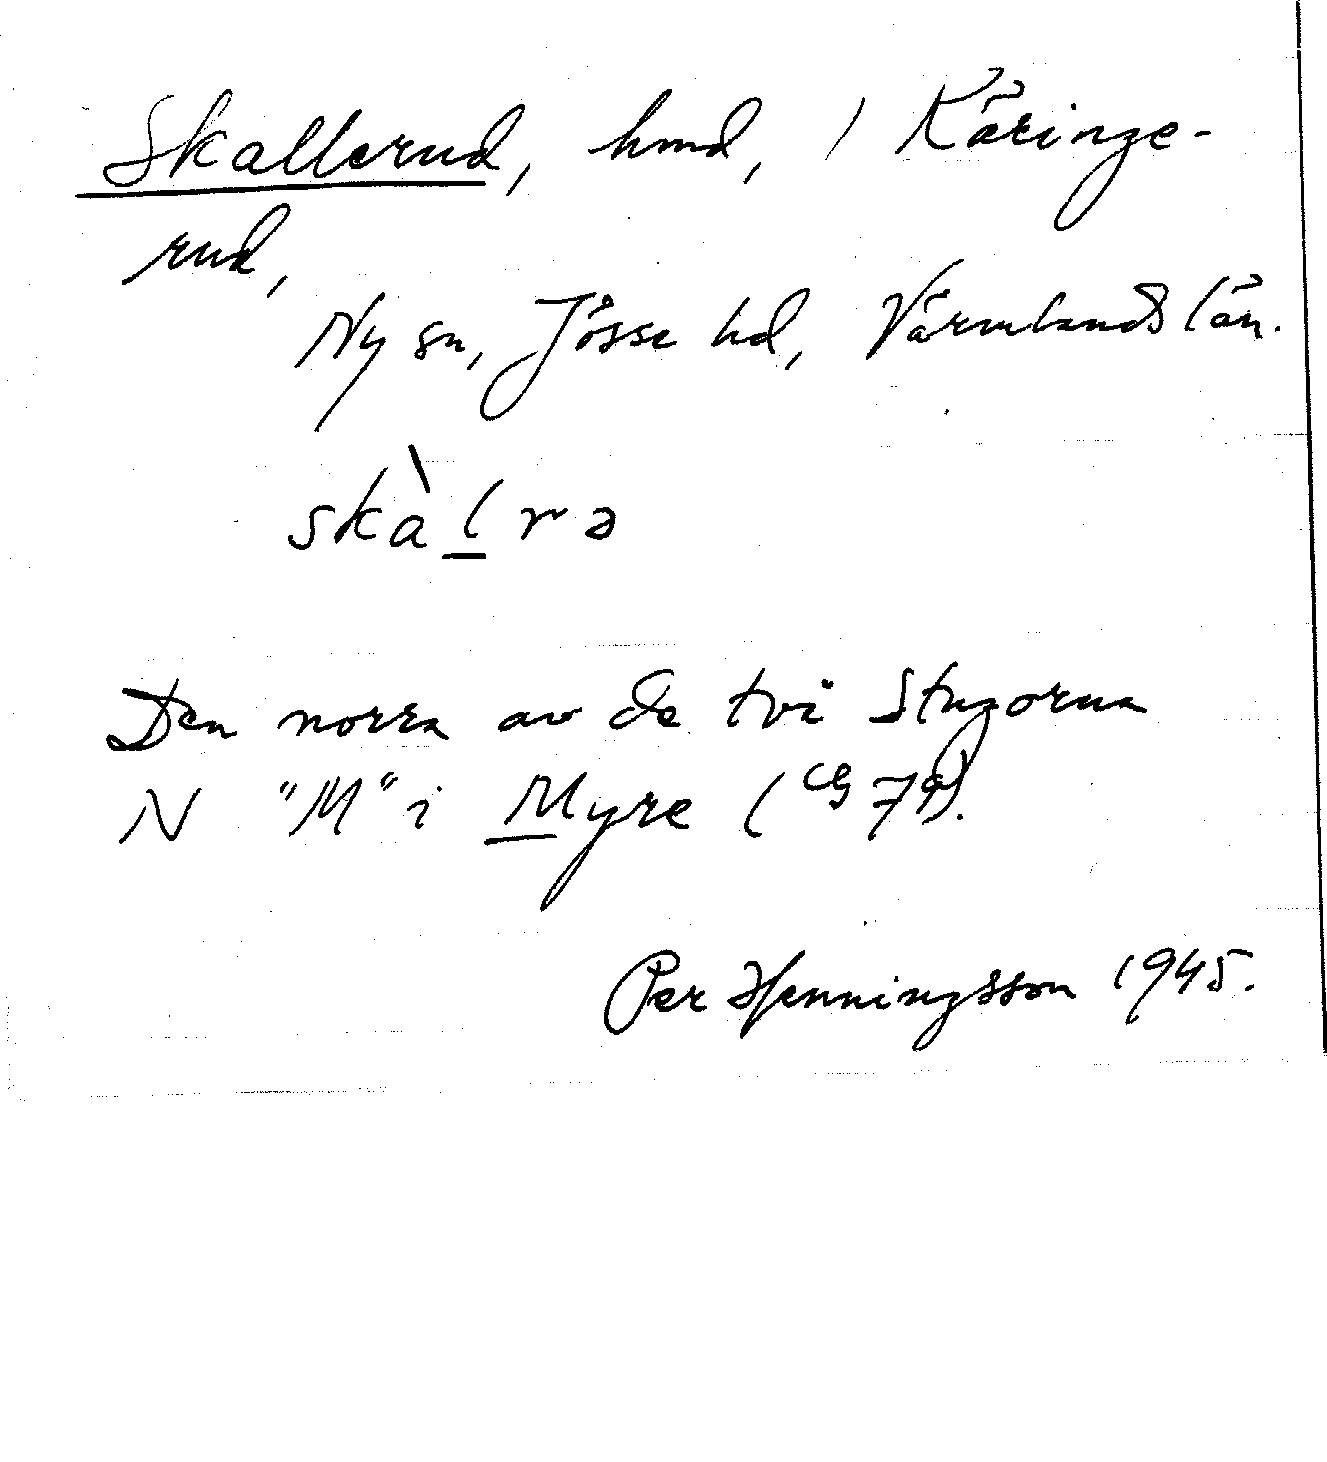 Skallerud, hmd, i Käringe-
rud,
Ny sn, Jösse hd, Värmlands län.
skàlrə
Den norra av de två stugorna
N "M" i Myre (
Per Henningsson 1945.